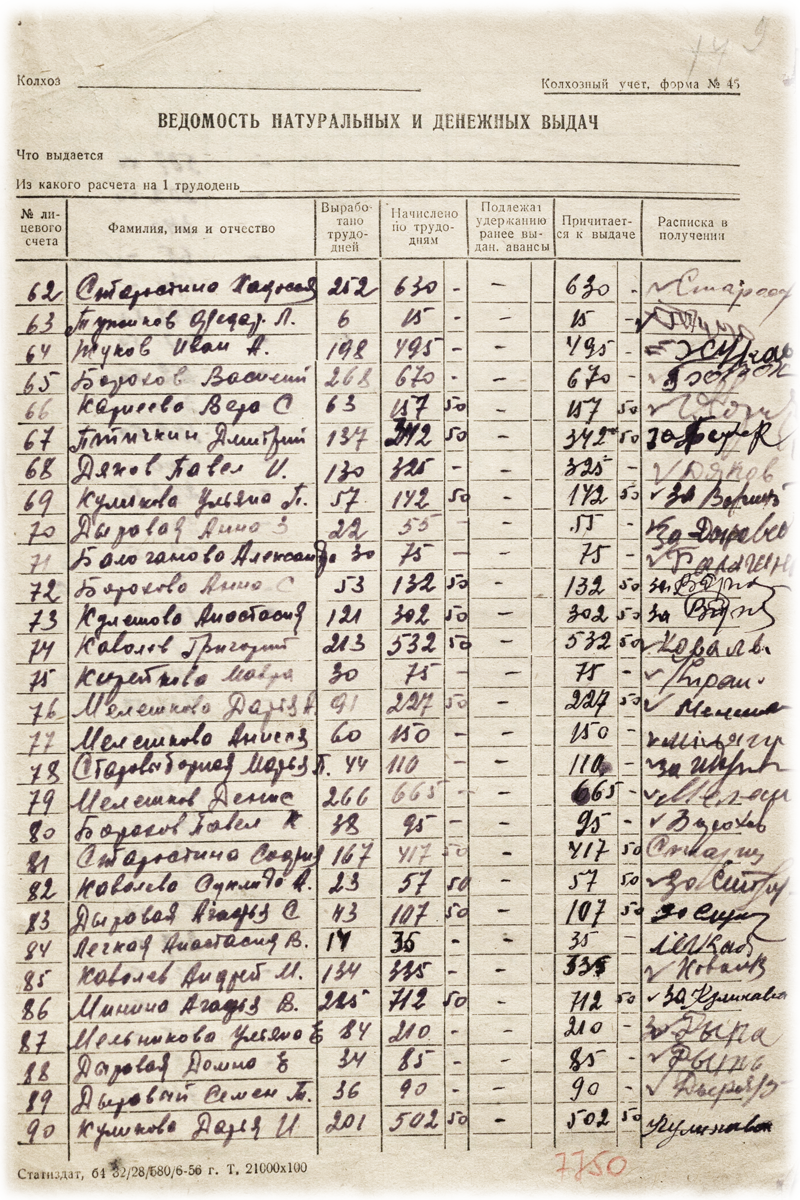 14 9
Колхоз
Колхозный учет, форма № 45
ВЕДОМОСТЬ НАТУРАЛЬНЫХ И ДЕНЕЖНЫХ ВЫДАЧ
Что выдается
Из какого расчета на 1 трудодень
№ лицевого счета Фамилия, имя и отчество Выработано трудодней Начислено по трудодням Подлежат удержанию ранее выдан. авансы Причитается к выдаче Расписка в получении
62 Старостина 252 630 - - 630 -
63 6 15 - - 15 -
64 Жуков Иван А. 198 495 - - 495 -
65 Борохов Василий 268 670 - - 670 -
66 Вера С 63 157 50 - 157 50
67 Птичкин Дмитрий 137 342 50 - 342 50 за
68 Дяков Павел И. 130 325 - - 325 - Дяков
69 Куликова Ульяна П. 57 142 50 - 142 50 за
70 Дыровая Анна З 22 55 - - 55 - за
71 Балоганова Александра 30 75 - - 75 -
72 Борохова Анна С 53 132 50 - 132 50 за
73 Кулешова Анастасия 121 302 50 - 302 50 за
74 Ковалев Григорий 213 532 50 - 532 50
75 Мавра 30 75 - - 75 -
76 Мелешкова Дарья А. 91 227 50 - 227 50
77 Мелешкова Анисья 60 150 - - 150 -
78 Старовыборная Марья П. 44 110 - - 110 - за
79 Мелешков Денис 266 665 - - 665 -
80 Борохов Павел К 38 95 - - 95 -
81 Старостина София 167 417 50 - 417 50
82 Ковалева А. 23 57 50 - 57 50 за
83 Дыровая Агафья С 43 107 50 - 107 50 за
84 Легкая Анастасия В. 14 35 - - 35 -
85 Ковалев Андрей М. 134 335 - - 335 -
86 Минина Агафья В. 285 712 50 - 712 50 за
87 Мельникова Ульяна Е 84 210 - - 210 -
88 Дыровая Домна Е 34 85 - - 85 -
89 Дыровый Семен Т. 36 90 - - 90 -
90 Куликова Дарья И 201 502 50 - 502 50
7750
Статиздат, б4 32/28/580/6-56 г. Т. 21000х100